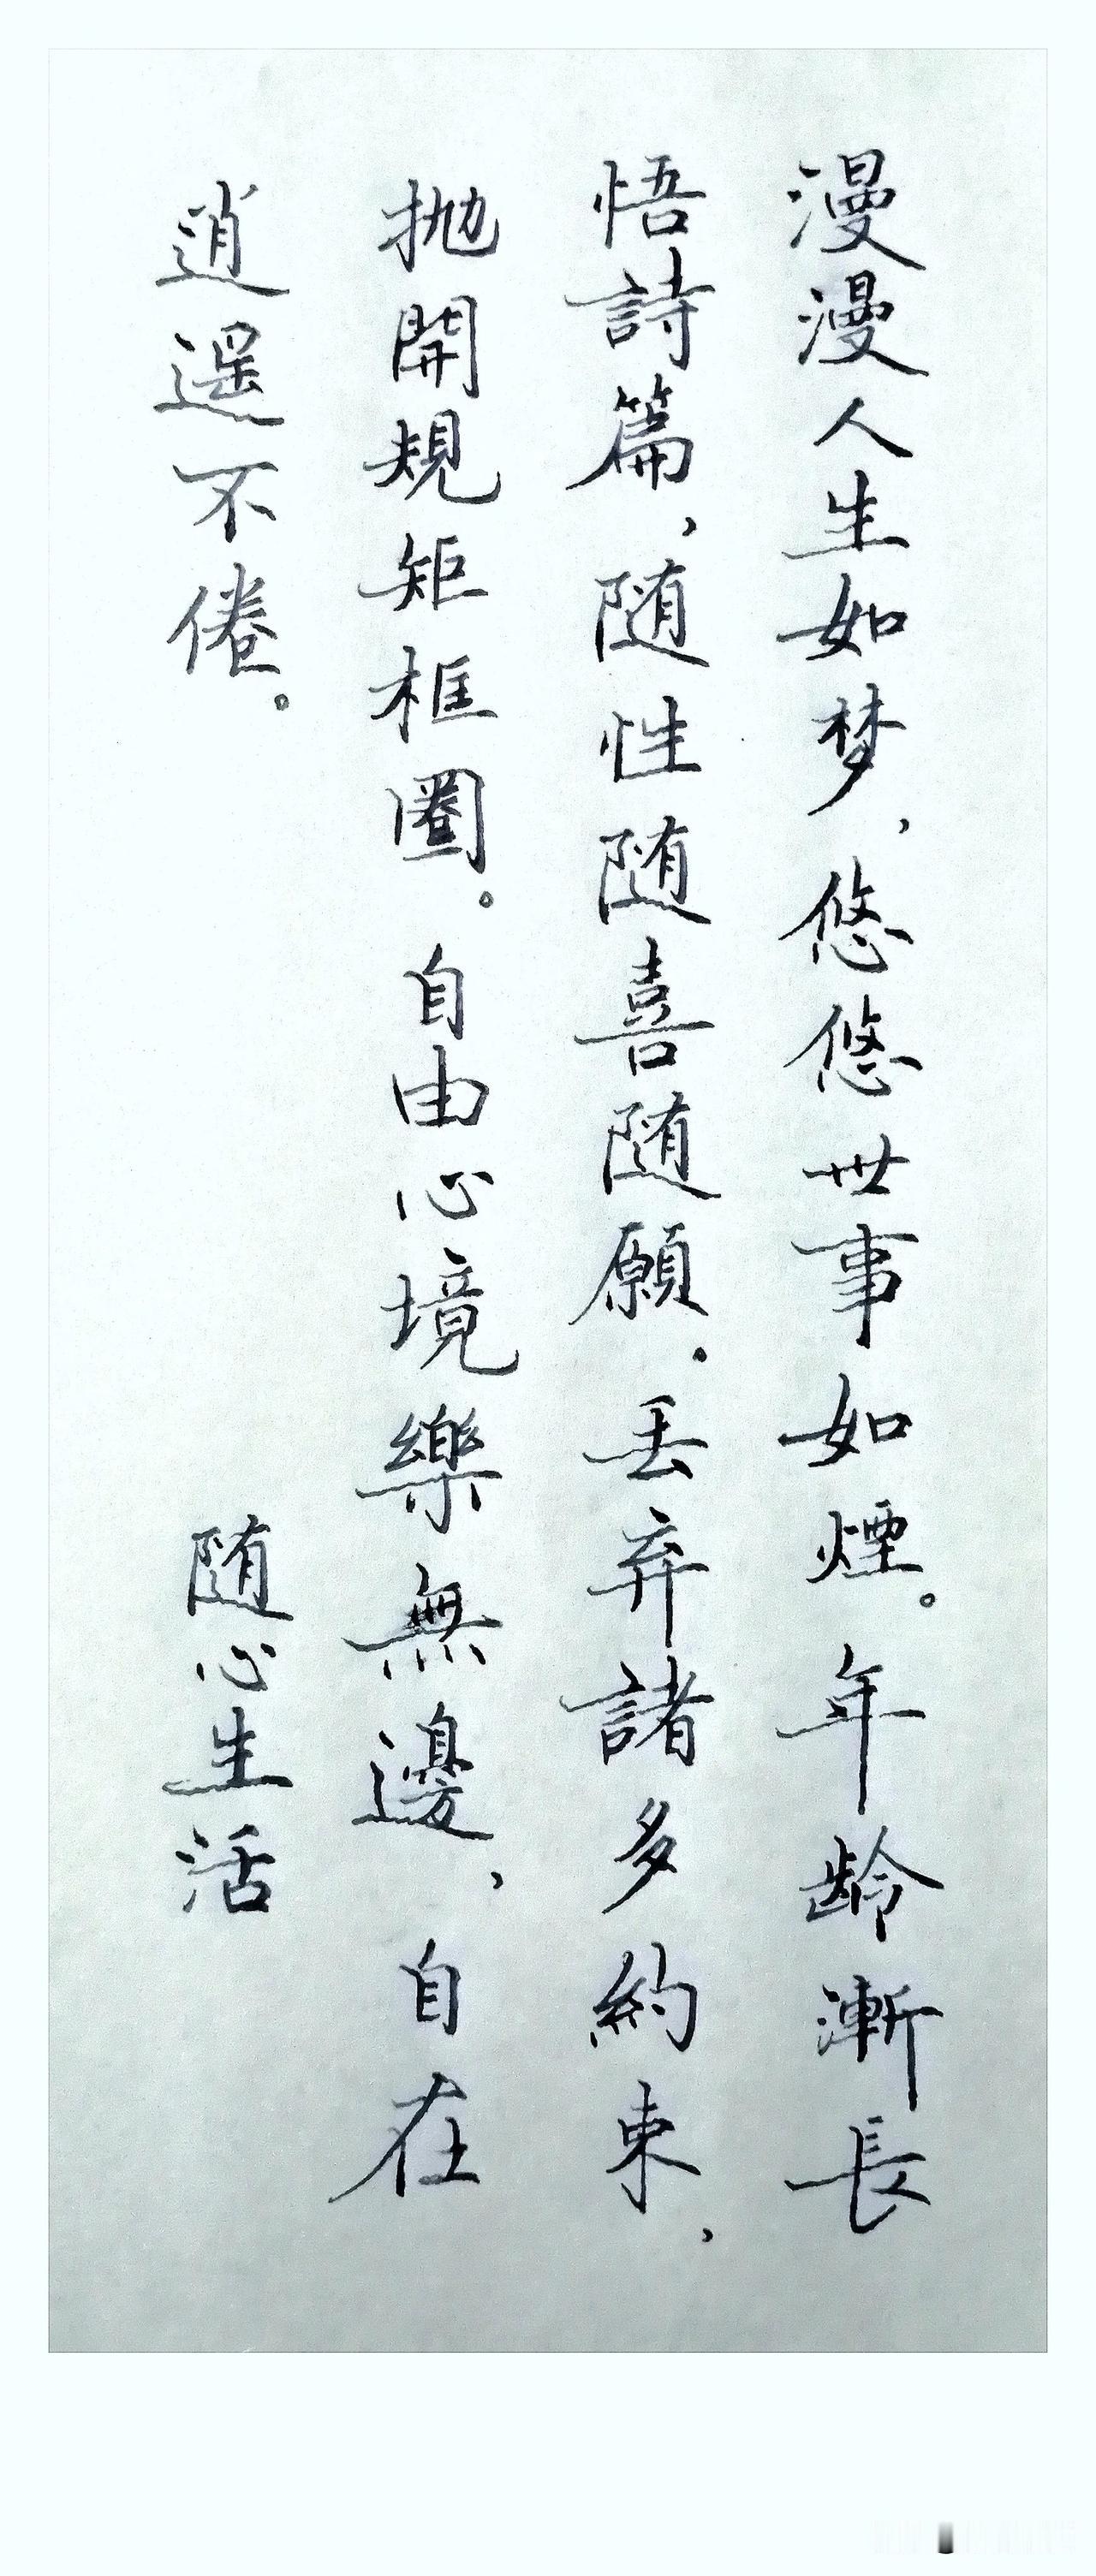 漫漫人生如梦，悠悠世事如煙。年龄漸長
悟詩篇，随性随喜随願。丢弃諸多約束，
抛開規矩框圈。自由心境樂無邊，自在
逍遥不倦。
随心生活